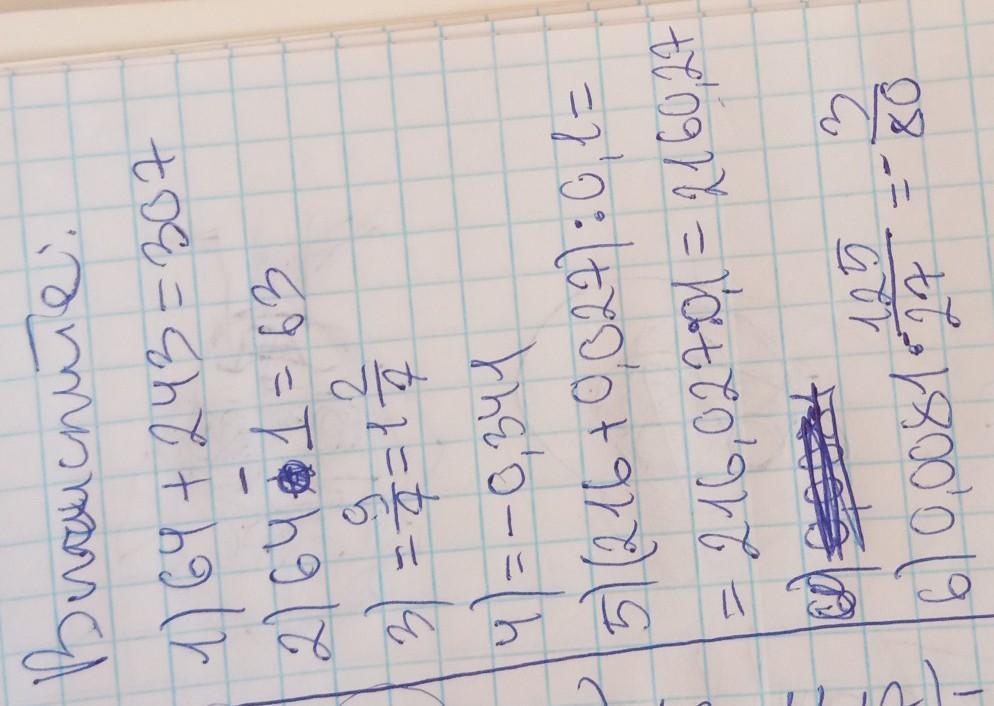 Вычислите:
1) 64 + 243 = 307
2) 64 - 1 = 63
3) = 9/7 = 1 2/7
4) = - 0,344
5) (216 + 0,027) : 0,1 =
= 216,027 : 0,1 = 2160,27
6) 0,0081 · 125/27 = 3/80